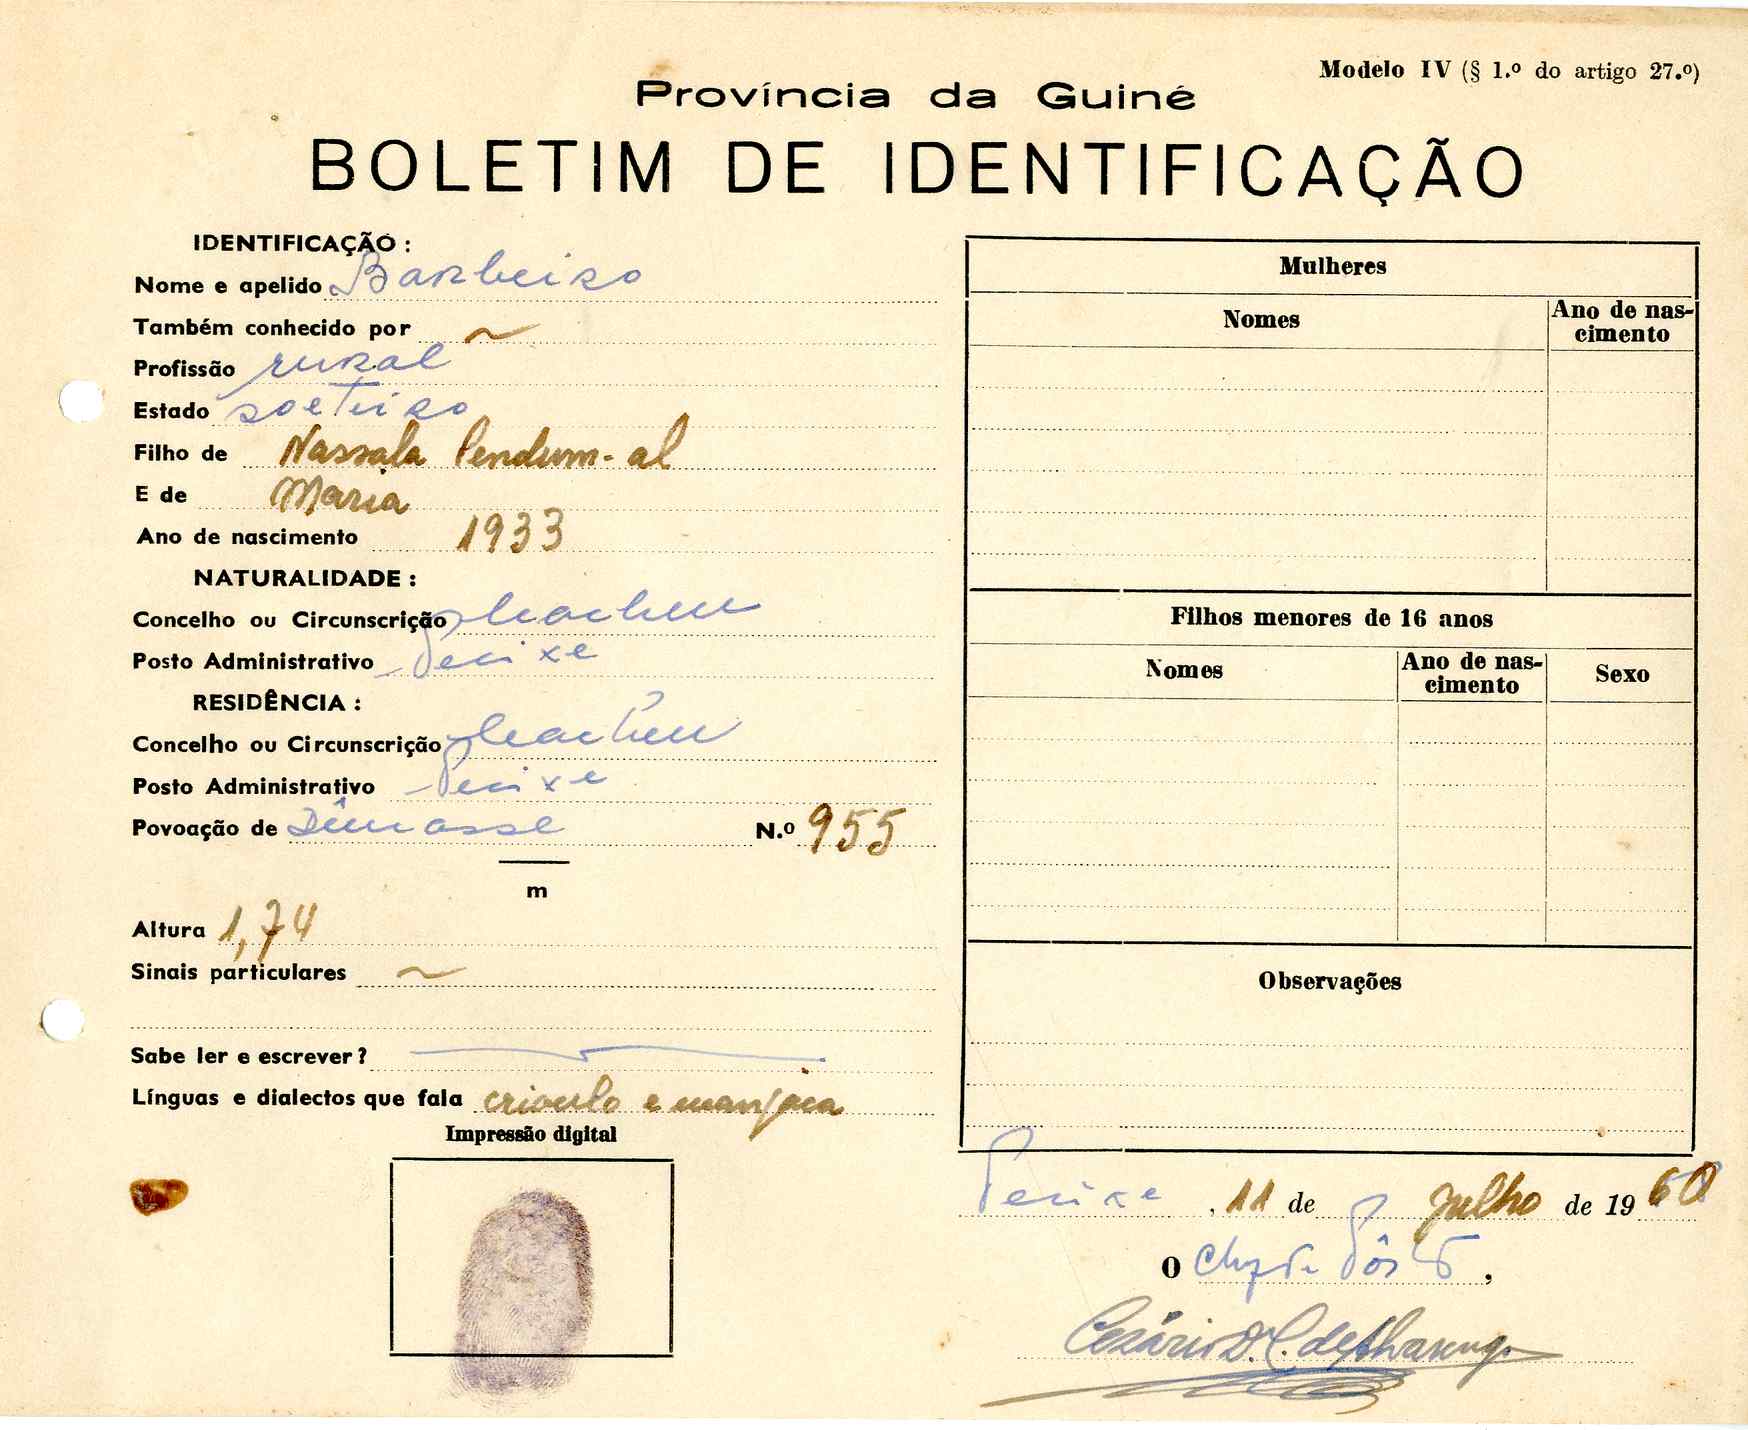 Modelo IV (§ 1.º do artigo 27.º)
Província da Guiné
BOLETIM DE IDENTIFICAÇÃO
IDENTIFICAÇÃO :
Nome e apelido Barbeiro
Também conhecido por ~
Profissão rural
Estado solteiro
Filho de Nassala Pendum-al
E de Maria
Ano de nascimento 1933
NATURALIDADE :
Concelho ou Circunscrição Cacheu
Posto Administrativo Pecixe
RESIDÊNCIA :
Concelho ou Circunscrição Cacheu
Posto Administrativo Pecixe
Povoação de N.º 955
m
Altura 1,74
Sinais particulares ~
Sabe ler e escrever?
Línguas e dialectos que fala crioulo e manjaca
Impressão digital
Mulheres
Nomes
Ano de nas-
cimento
Filhos menores de 16 anos
Nomes
Ano de nas-
cimento
Sexo
Observações
Pecixe, 11 de Julho de 1960
O Chefe de Pôsto,
Cesário D. C. de Alvarenga